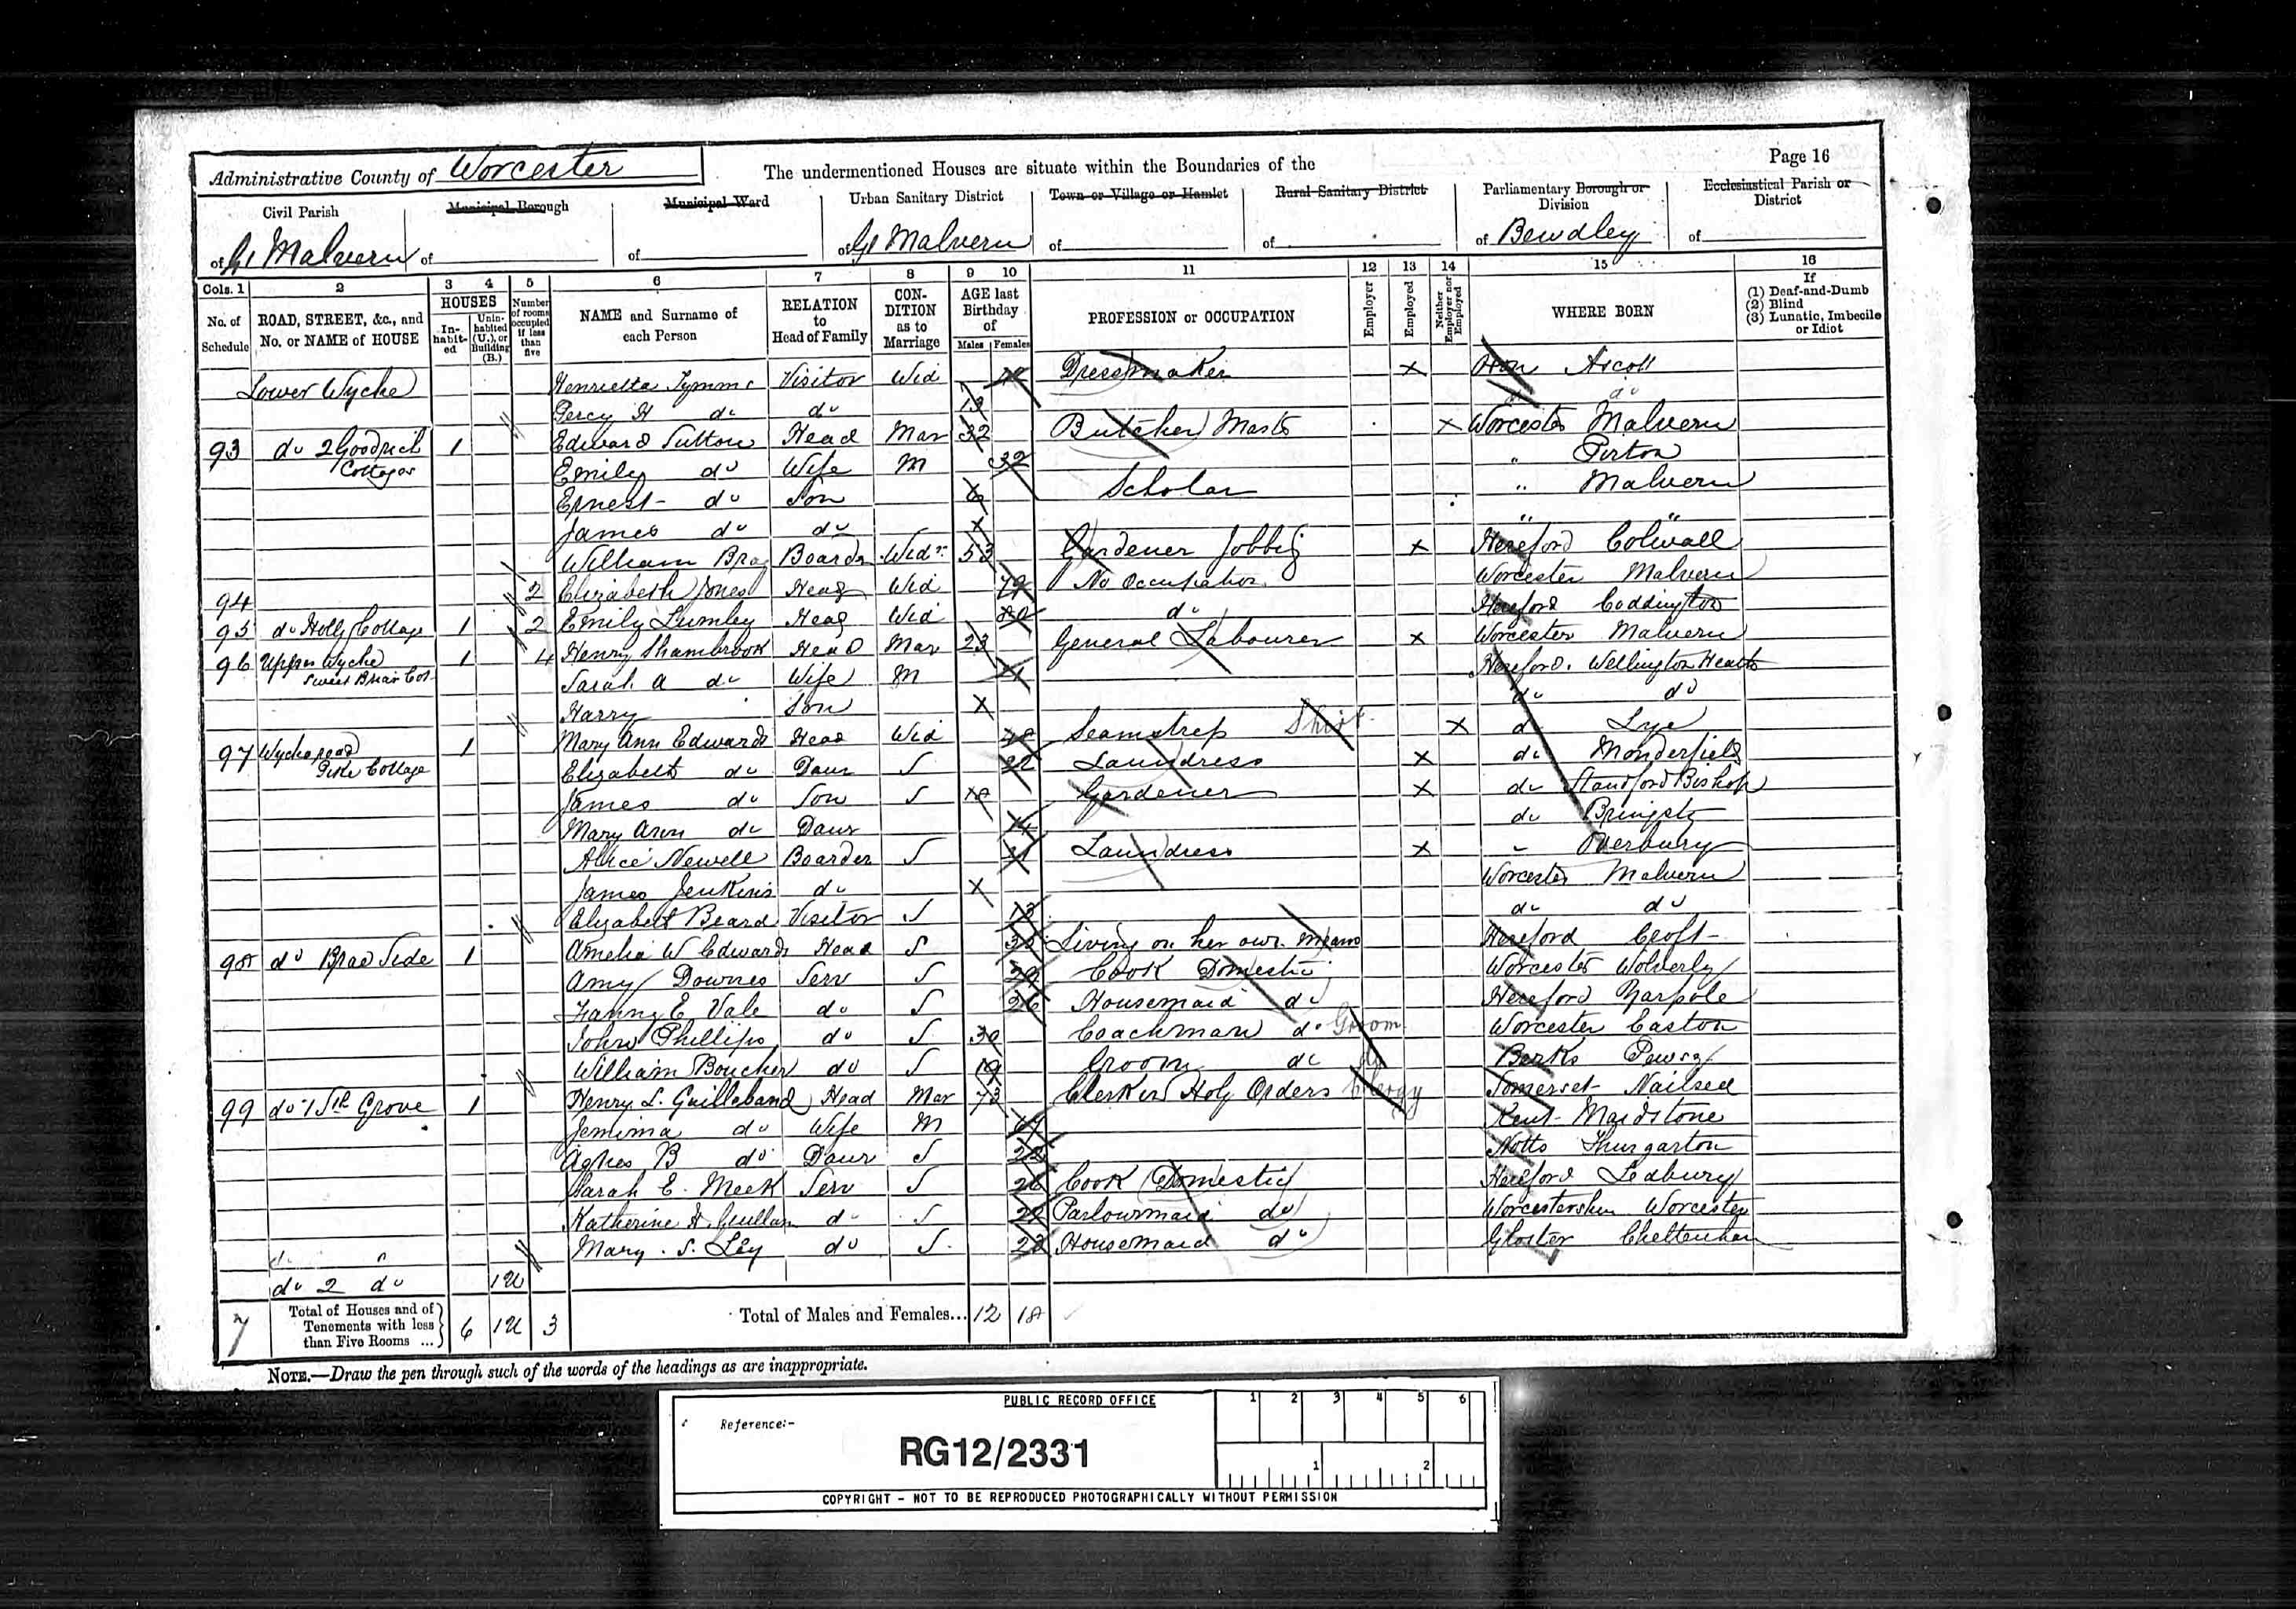 Administrative County of Worcester
The undermentioned Houses are situate within the Boundaries of the
Page 16
Civil Parish
Municipal Borough
Municipal Ward
Urban Sanitary District
Town or Village or Hamlet
Rural Sanitary District
Parliamentary Borough or Division
Ecclesiastical Parish or District
of Gt Malvern of of of Gt Malvern of of of Bewdley of
Cols. 1 2 3 4 5 6 7 8 9 10 11 12 13 14 15 16
No. of Schedule
ROAD, STREET, &c., and No. or NAME of HOUSE
HOUSES
In-habit-ed
Unin-habited (U.), or Building (B.)
Number of rooms occupied if less than five
NAME and Surname of each Person
RELATION to Head of Family
CON-DITION as to Marriage
AGE last Birthday of
Males Females
PROFESSION or OCCUPATION
Employer
Employed
Neither Employer nor Employed
WHERE BORN
If
(1) Deaf-and-Dumb
(2) Blind
(3) Lunatic, Imbecile or Idiot
Lower Wyche Henrietta Visitor Wid Dressmaker X
Percy H do do 13 do do
93 do 2 Goodrich Cottages 1 Edward Sutton Head Mar 32 Butcher Master X Worcester Malvern
Emily do Wife M 32 " Pirton
Ernest do Son Scholar " Malvern
James do do " "
William Boarder Widr 53 Gardener Jobbing X Hereford Colwall
94 2 Elizabeth Jones Head Wid 79 No Occupation Worcester Malvern
95 do Holly Cottage 1 2 Emily Lumley Head Wid do Hereford Coddington
96 Upper Wyche Sweet Briar Cot 1 4 Henry Shambrook Head Mar 23 General Labourer X Worcester Malvern
Sarah A do Wife M Hereford Wellington Heath
Harry Son do do
97 Wyche road Cottage 1 Mary Ann Edwards Head Wid Seamstress Shirt X do Lye
Elizabeth do Daur S 22 Laundress X do Monderfield
James do Son S Gardener X do Standford Bishop
Mary Ann do Daur 14 do
Alice Newell Boarder S 21 Laundress X " Overbury
James Jenkins do Worcester Malvern
Elizabeth Beard Visitor S 13 do do
98 do Brae Side 1 Amelia W Edwards Head S Living on her own means Hereford Croft
Amy Downes Serv S Cook Domestic Worcester Wolverly
Fanny E Vale do S 26 Housemaid do Hereford Yarpole
John Phillips do S 30 Coachman do Groom Worcester Easton
William Boucher do S 19 Groom do do Berks Pewsey
99 do 1 Sth Grove 1 Henry L. Guillebaud Head Mar 73 Clerk in Holy Orders Clergy Somerset Nailsea
Jemima do Wife M Kent Maidstone
Agnes B do Daur S 22 Notts Thurgarton
Sarah E. Meek Serv S 26 Cook (Domestic) Hereford Ledbury
Katherine H do S 22 Parlourmaid do Worcestershire Worcester
Mary S. Ley do S 23 Housemaid do Gloster Cheltenham
do "
do 2 do 1U
7 Total of Houses and of Tenements with less than Five Rooms ... 6 1U 3 Total of Males and Females... 12 18
NOTE.—Draw the pen through such of the words of the headings as are inappropriate.
PUBLIC RECORD OFFICE
Reference:-
RG12/2331
1 2 3 4 5 6
1 2
COPYRIGHT - NOT TO BE REPRODUCED PHOTOGRAPHICALLY WITHOUT PERMISSION